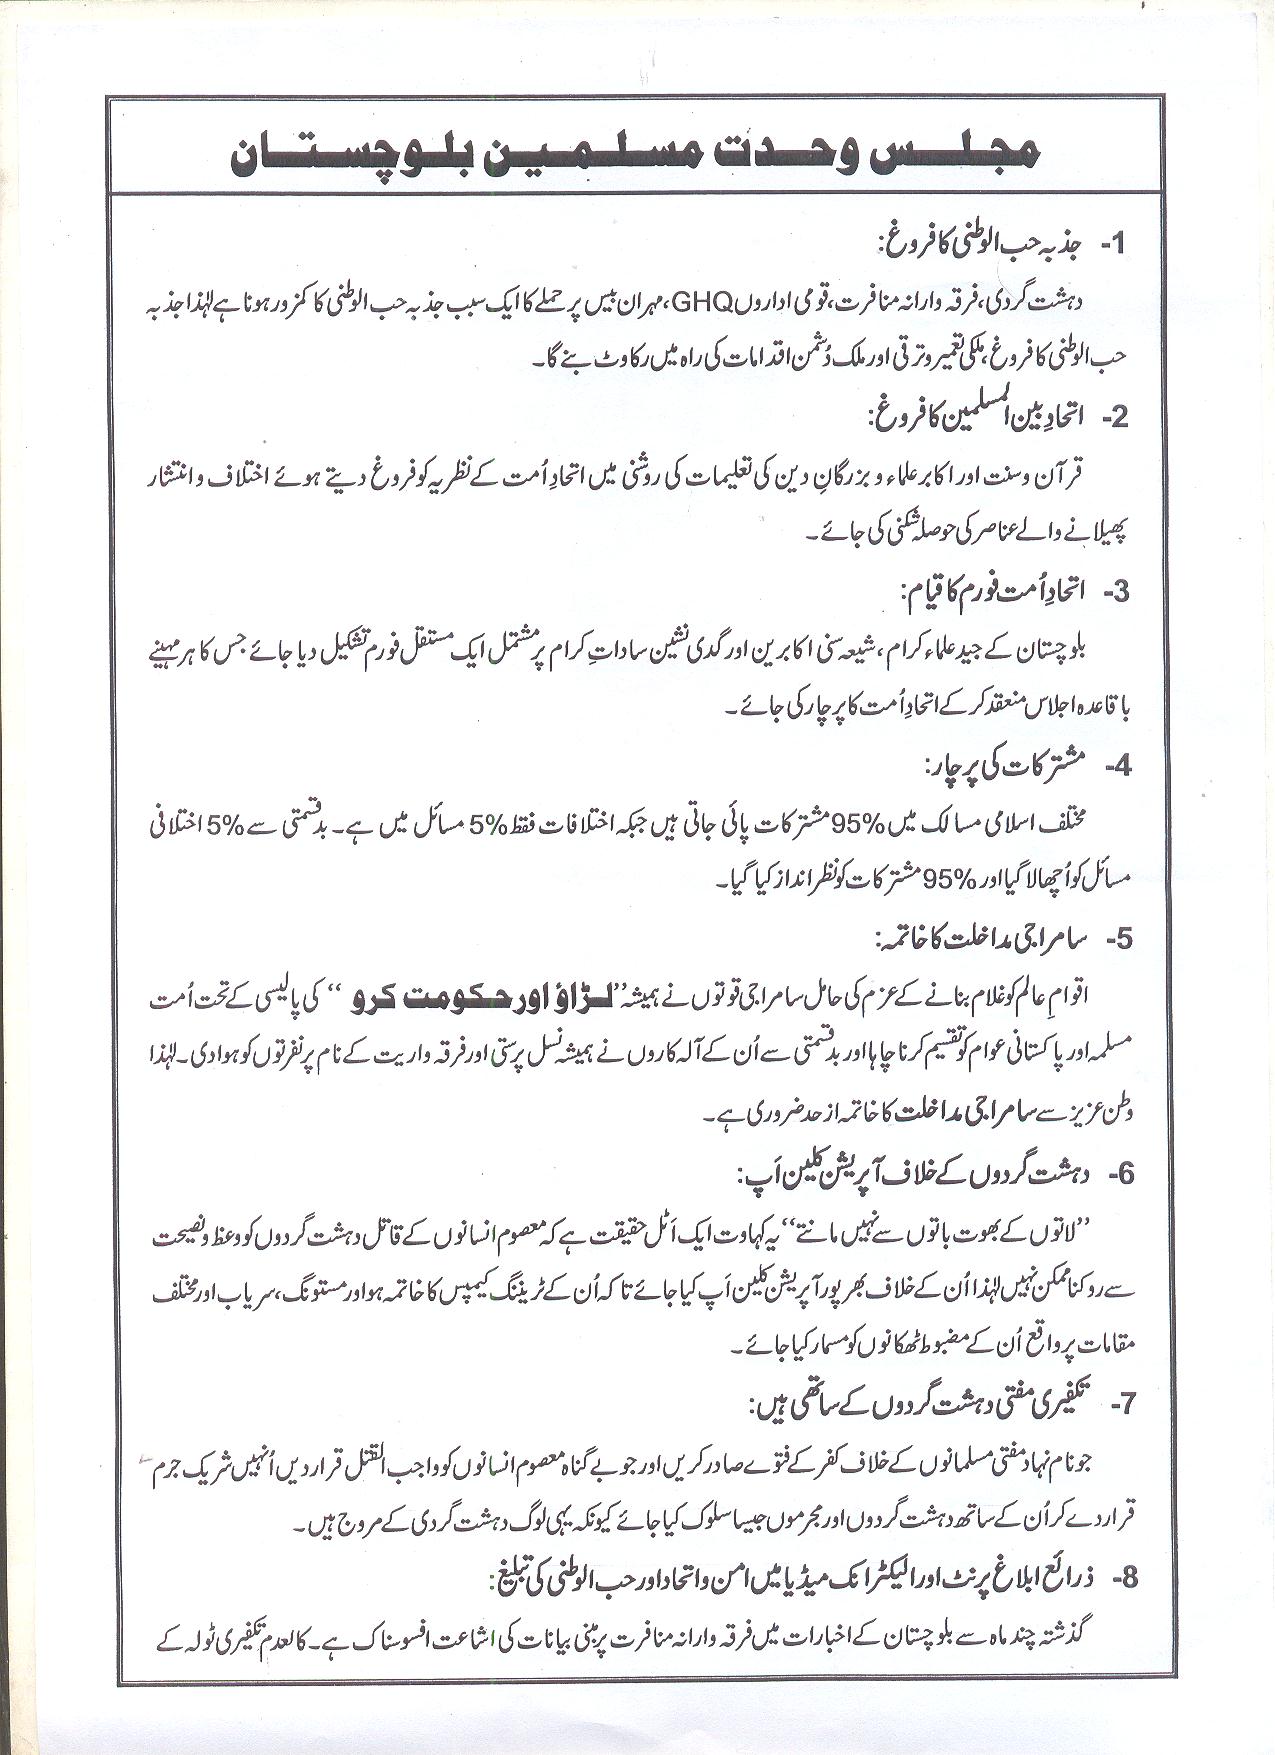 مجلس وحدت مسلمین بلوچستان
1- جذبہ حب الوطنی کا فروغ:
دہشت گردی، فرقہ وارانہ منافرت، قومی اداروں GHQ، مہران بیس پر حملے کا ایک سبب جذبہ حب الوطنی کا کمزور ہونا ہے لہٰذا جذبہ
حب الوطنی کا فروغ، ملکی تعمیر و ترقی اور ملک دُشمن اقدامات کی راہ میں رکاوٹ بنے گا۔
2- اتحادِ بین المسلمین کا فروغ:
قرآن و سنت اور اکابر علماء و بزرگانِ دین کی تعلیمات کی روشنی میں اتحادِ اُمت کے نظریہ کو فروغ دیتے ہوئے اختلاف و انتشار
پھیلانے والے عناصر کی حوصلہ شکنی کی جائے۔
3- اتحادِ اُمت فورم کا قیام:
بلوچستان کے جید علماء کرام، شیعہ سنی اکابرین اور گدی نشین ساداتِ کرام پر مشتمل ایک مستقل فورم تشکیل دیا جائے جس کا ہر مہینے
باقاعدہ اجلاس منعقد کر کے اتحادِ اُمت کا پرچار کی جائے۔
4- مشترکات کی پرچار:
مختلف اسلامی مسالک میں 95% مشترکات پائی جاتی ہیں جبکہ اختلافات فقط 5% مسائل میں ہے۔ بدقسمتی سے 5% اختلافی
مسائل کو اُچھالا گیا اور 95% مشترکات کو نظر انداز کیا گیا۔
5- سامراجی مداخلت کا خاتمہ:
اقوامِ عالم کو غلام بنانے کے عزم کی حامل سامراجی قوتوں نے ہمیشہ ”لڑاؤ اور حکومت کرو“ کی پالیسی کے تحت اُمت
مسلمہ اور پاکستانی عوام کو تقسیم کرنا چاہا اور بدقسمتی سے اُن کے آلہ کاروں نے ہمیشہ نسل پرستی اور فرقہ واریت کے نام پر نفرتوں کو ہوا دی۔ لہٰذا
وطن عزیز سے سامراجی مداخلت کا خاتمہ از حد ضروری ہے۔
6- دہشت گردوں کے خلاف آپریشن کلین اَپ:
”لاتوں کے بھوت باتوں سے نہیں مانتے“ یہ کہاوت ایک اَٹل حقیقت ہے کہ معصوم انسانوں کے قاتل دہشت گردوں کو وعظ و نصیحت
سے روکنا ممکن نہیں لہٰذا اُن کے خلاف بھرپور آپریشن کلین اَپ کیا جائے تاکہ اُن کے ٹریننگ کیمپس کا خاتمہ ہو اور مستونگ، سریاب اور مختلف
مقامات پر واقع اُن کے مضبوط ٹھکانوں کو مسمار کیا جائے۔
7- تکفیری مفتی دہشت گردوں کے ساتھی ہیں:
جو نام نہاد مفتی مسلمانوں کے خلاف کفر کے فتوے صادر کریں اور جو بے گناہ معصوم انسانوں کو واجب القتل قرار دیں اُنہیں شریک جرم
قرار دے کر اُن کے ساتھ دہشت گردوں اور مجرموں جیسا سلوک کیا جائے کیونکہ یہی لوگ دہشت گردی کے مروج ہیں۔
8- ذرائع ابلاغ پرنٹ اور الیکٹرانک میڈیا میں امن و اتحاد اور حب الوطنی کی تبلیغ:
گذشتہ چند ماہ سے بلوچستان کے اخبارات میں فرقہ وارانہ منافرت پر مبنی بیانات کی اشاعت افسوسناک ہے۔ کالعدم تکفیری ٹولہ کے